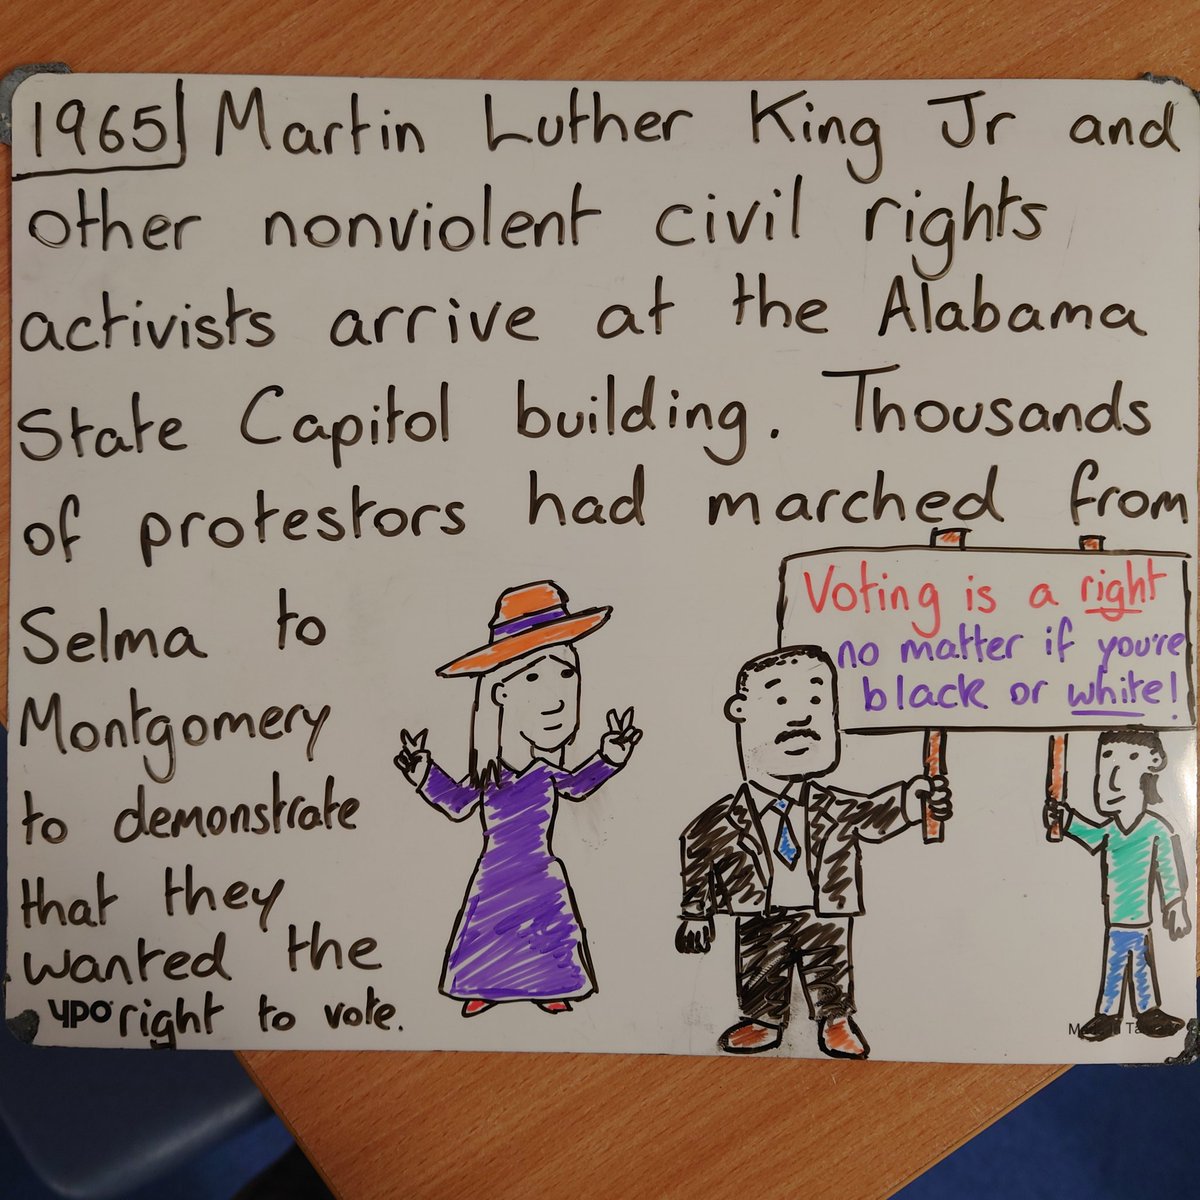 1965 Martin Luther King Jr and
other nonviolent civil rights
activists arrive at the Alabama
State Capitol building. Thousands
of protestors had marched from
Selma to
Montgomery
to demonstrate
that they
wanted the
right to vote.
YPO
Voting is a right
no matter if you're
black or white!